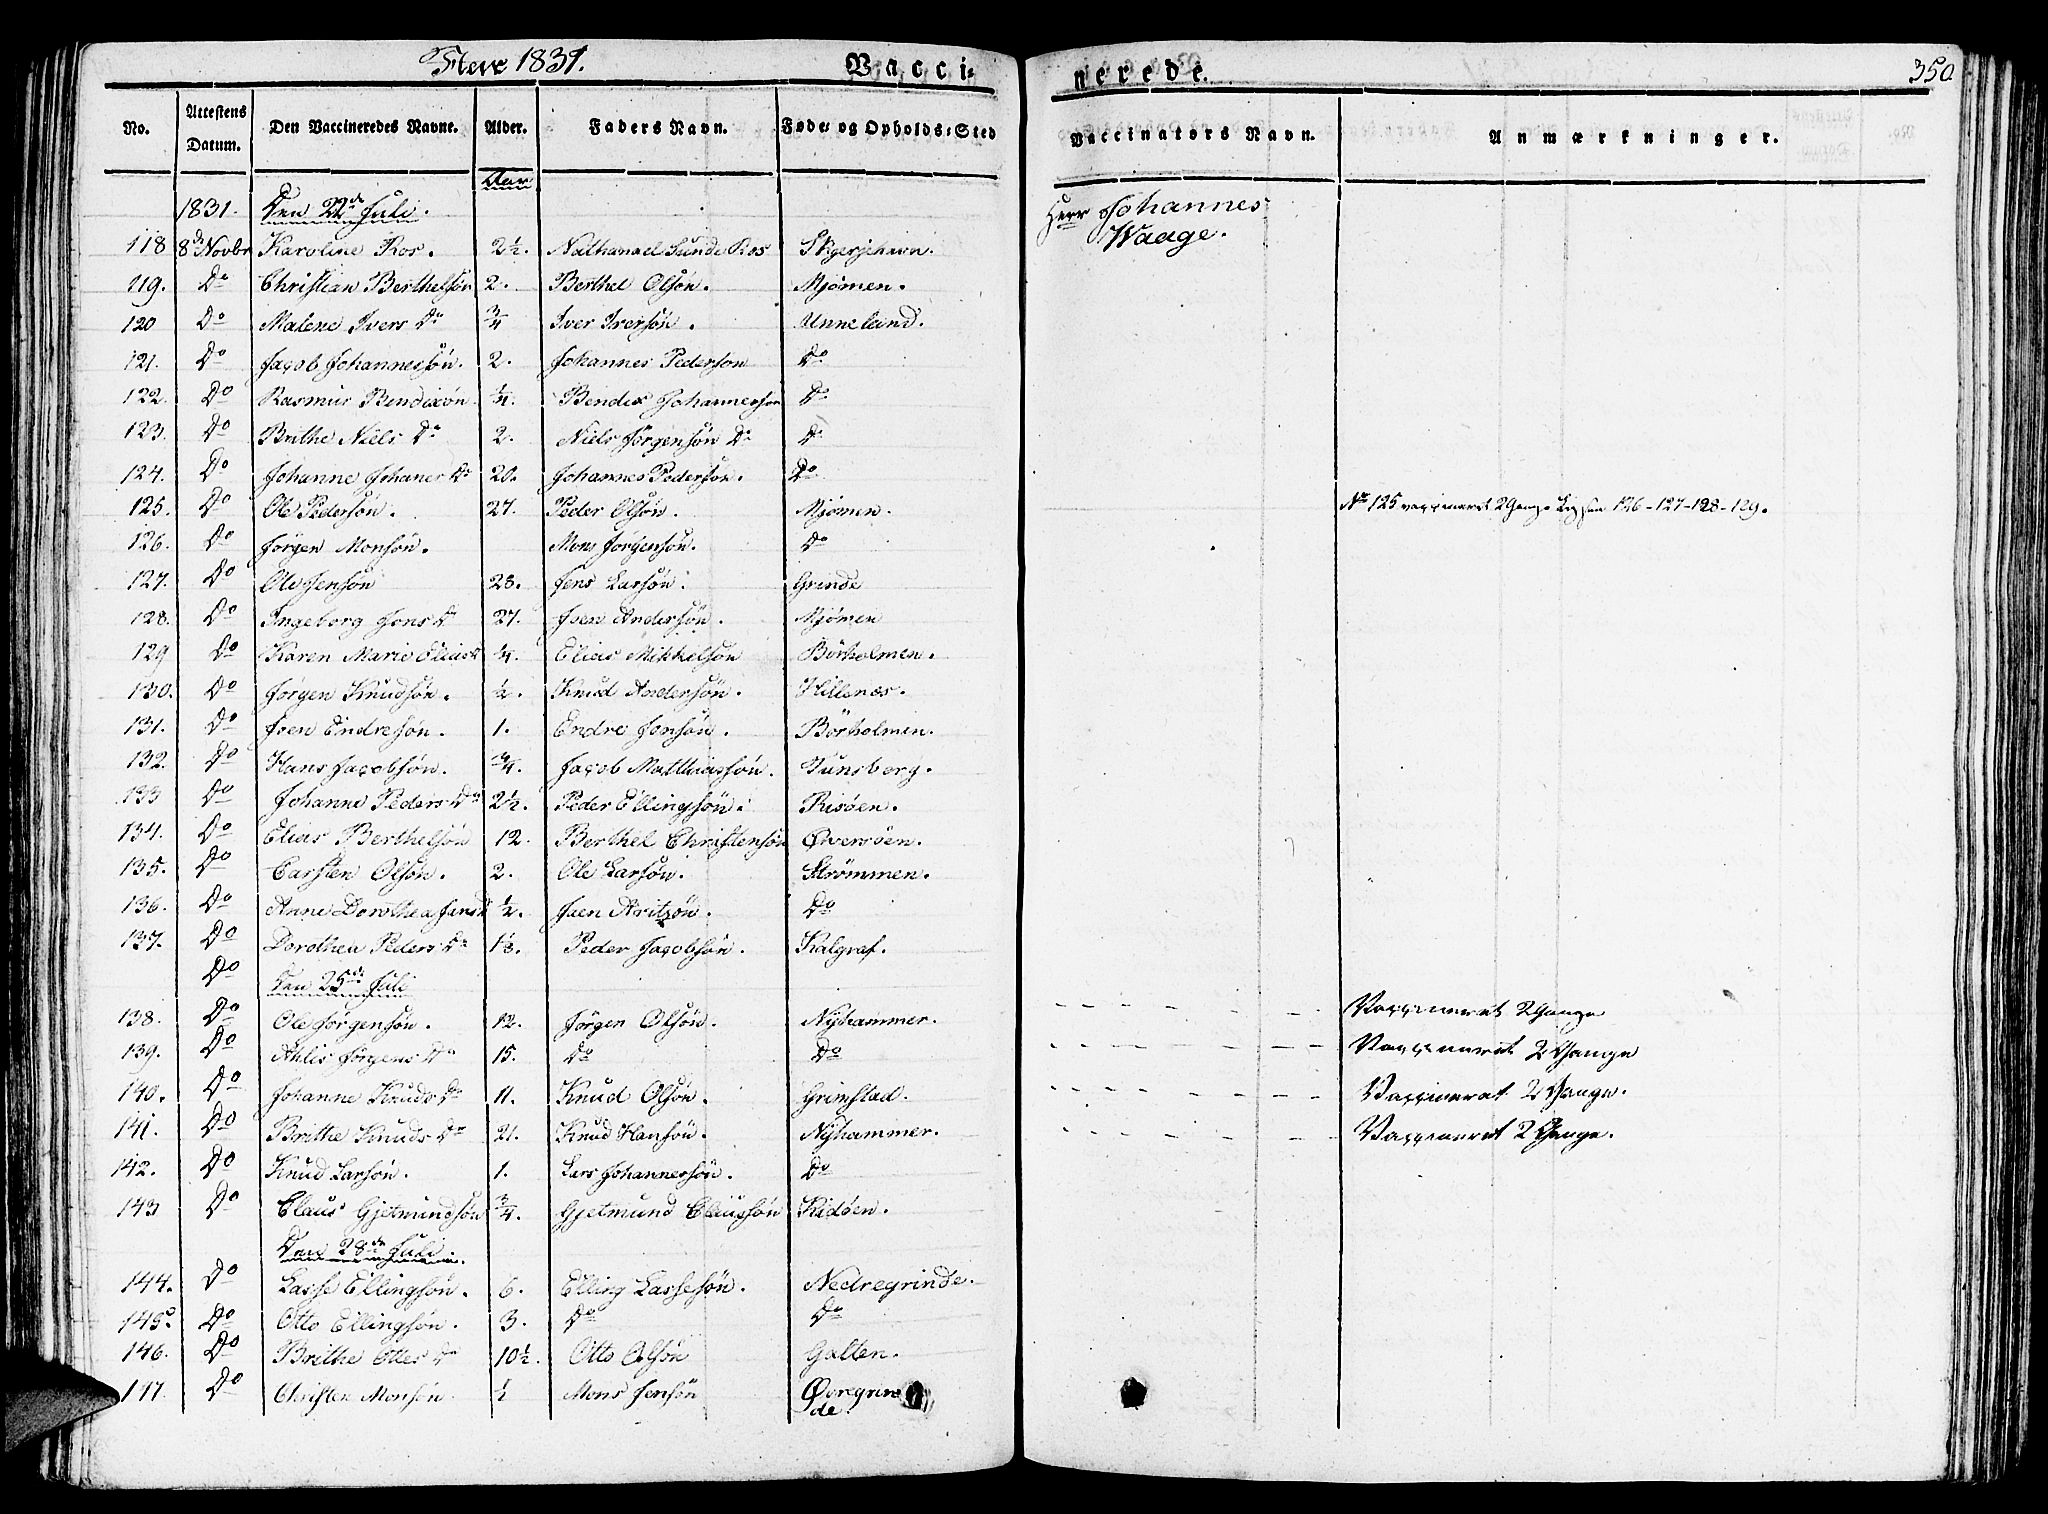 1831. Vacci-
nerede.
350
No. Attestens Datum. Den Vaccineredes Navne. Alder. Faders Navn. Føde- og Opholds-Sted Vaccinators Navn. Anmærkninger.
Aar
1831. Den 22de Juli. Herr Johannes
118 8de Novbr Karoline Ros. 2½. Nathanael Sunde Ros Skjerjehavn. Waage.
119. Do Christian Berthelsøn 2. Berthel Olsøn. Mjømen.
120 Do Malene Ivers Dr ¾ Iver Iversøn. Unneland.
121. Do Jacob Johannessøn. 2. Johannes Pedersøn Do
122. Do Rasmus Bendixøn ¼. Bendix Johannessøn Do
123. Do Brithe Niels Dr 2. Niels Jørgensøn Do
124. Do Johanne Johanes Dr 20. Johannes Pedersøn. Do
125. Do Ole Pedersøn. 27. Peder Olsøn. Mjømen. No 125 vaccineret 2 Gange 126-127-128-129.
126. Do Jørgen Monsøn. Mons Jørgensøn. Do
127. Do Ole Jensøn 28. Jens Larsøn. Grinde
128. Do Ingeborg Jons Dr 27. Joen Andersøn. Mjømen
129 Do Karen Marie Elias Dr ¼. Elias Mikkelsøn Börholmen.
130. Do Jørgen Knudsøn. ½. Knud Andersøn. Hillenæs.
131. Do Joen Endresøn. 1. Endre Jonsøn. Börholmen.
132. Do Hans Jacobsøn. ¾. Jacob Matthiassøn. Tunsberg.
133 Do Johanne Peders Dr 2½. Peder Ellingsøn. Risöen.
134. Do Elias Berthelsøn 12. Berthel Christensøn Øversöen.
135. Do Carsten Olsøn. 2. Ole Larsøn. Strömmen.
136. Do Anne Dorothea Jens D ½. Joen Do
137. Do Dorothea Peders Dr 1⅛. Peder Jacobsøn. Kalgraf.
Do Den 25de Juli
138. Do Ole Jørgensøn. 12. Jørgen Olsøn. Nyhammer. Vaccineret 2 Gange
139. Do Ahlis Jørgens Dr 15. Do Do Vaccineret 2 Gange
140. Do Johanne Knuds Dr 11. Knud Olsøn. Grimstad. Vaccineret 2 Gange.
141. Do Brithe Knuds Dr 21. Knud Hansøn. Nyhammer. Vaccineret 2 Gange.
142. Do Knud Larsøn. 1. Lars Johannessøn. Do
143 Do Claus Gjetmundsøn ¾. Gjetmund Claussøn Kidöen.
Den 28de Juli.
144. Do Lasse Ellingsøn. 6. Elling Lassesøn. Nedregrinde.
145. Do Otto Ellingsøn. 3. Do Do
146. Do Brithe Ottes Dr 10½. Otto Olsøn Galten.
147. Do Christen Monsøn. ½ Mons Jensøn Øvregrin
de.